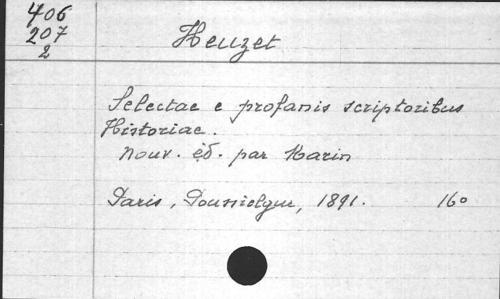 406
207
2
Heuzet
Selectae e profanis scriptoribus
Historiae.
Nouv. éd. par Marin
Paris, Poussielgue, 1891. 16o